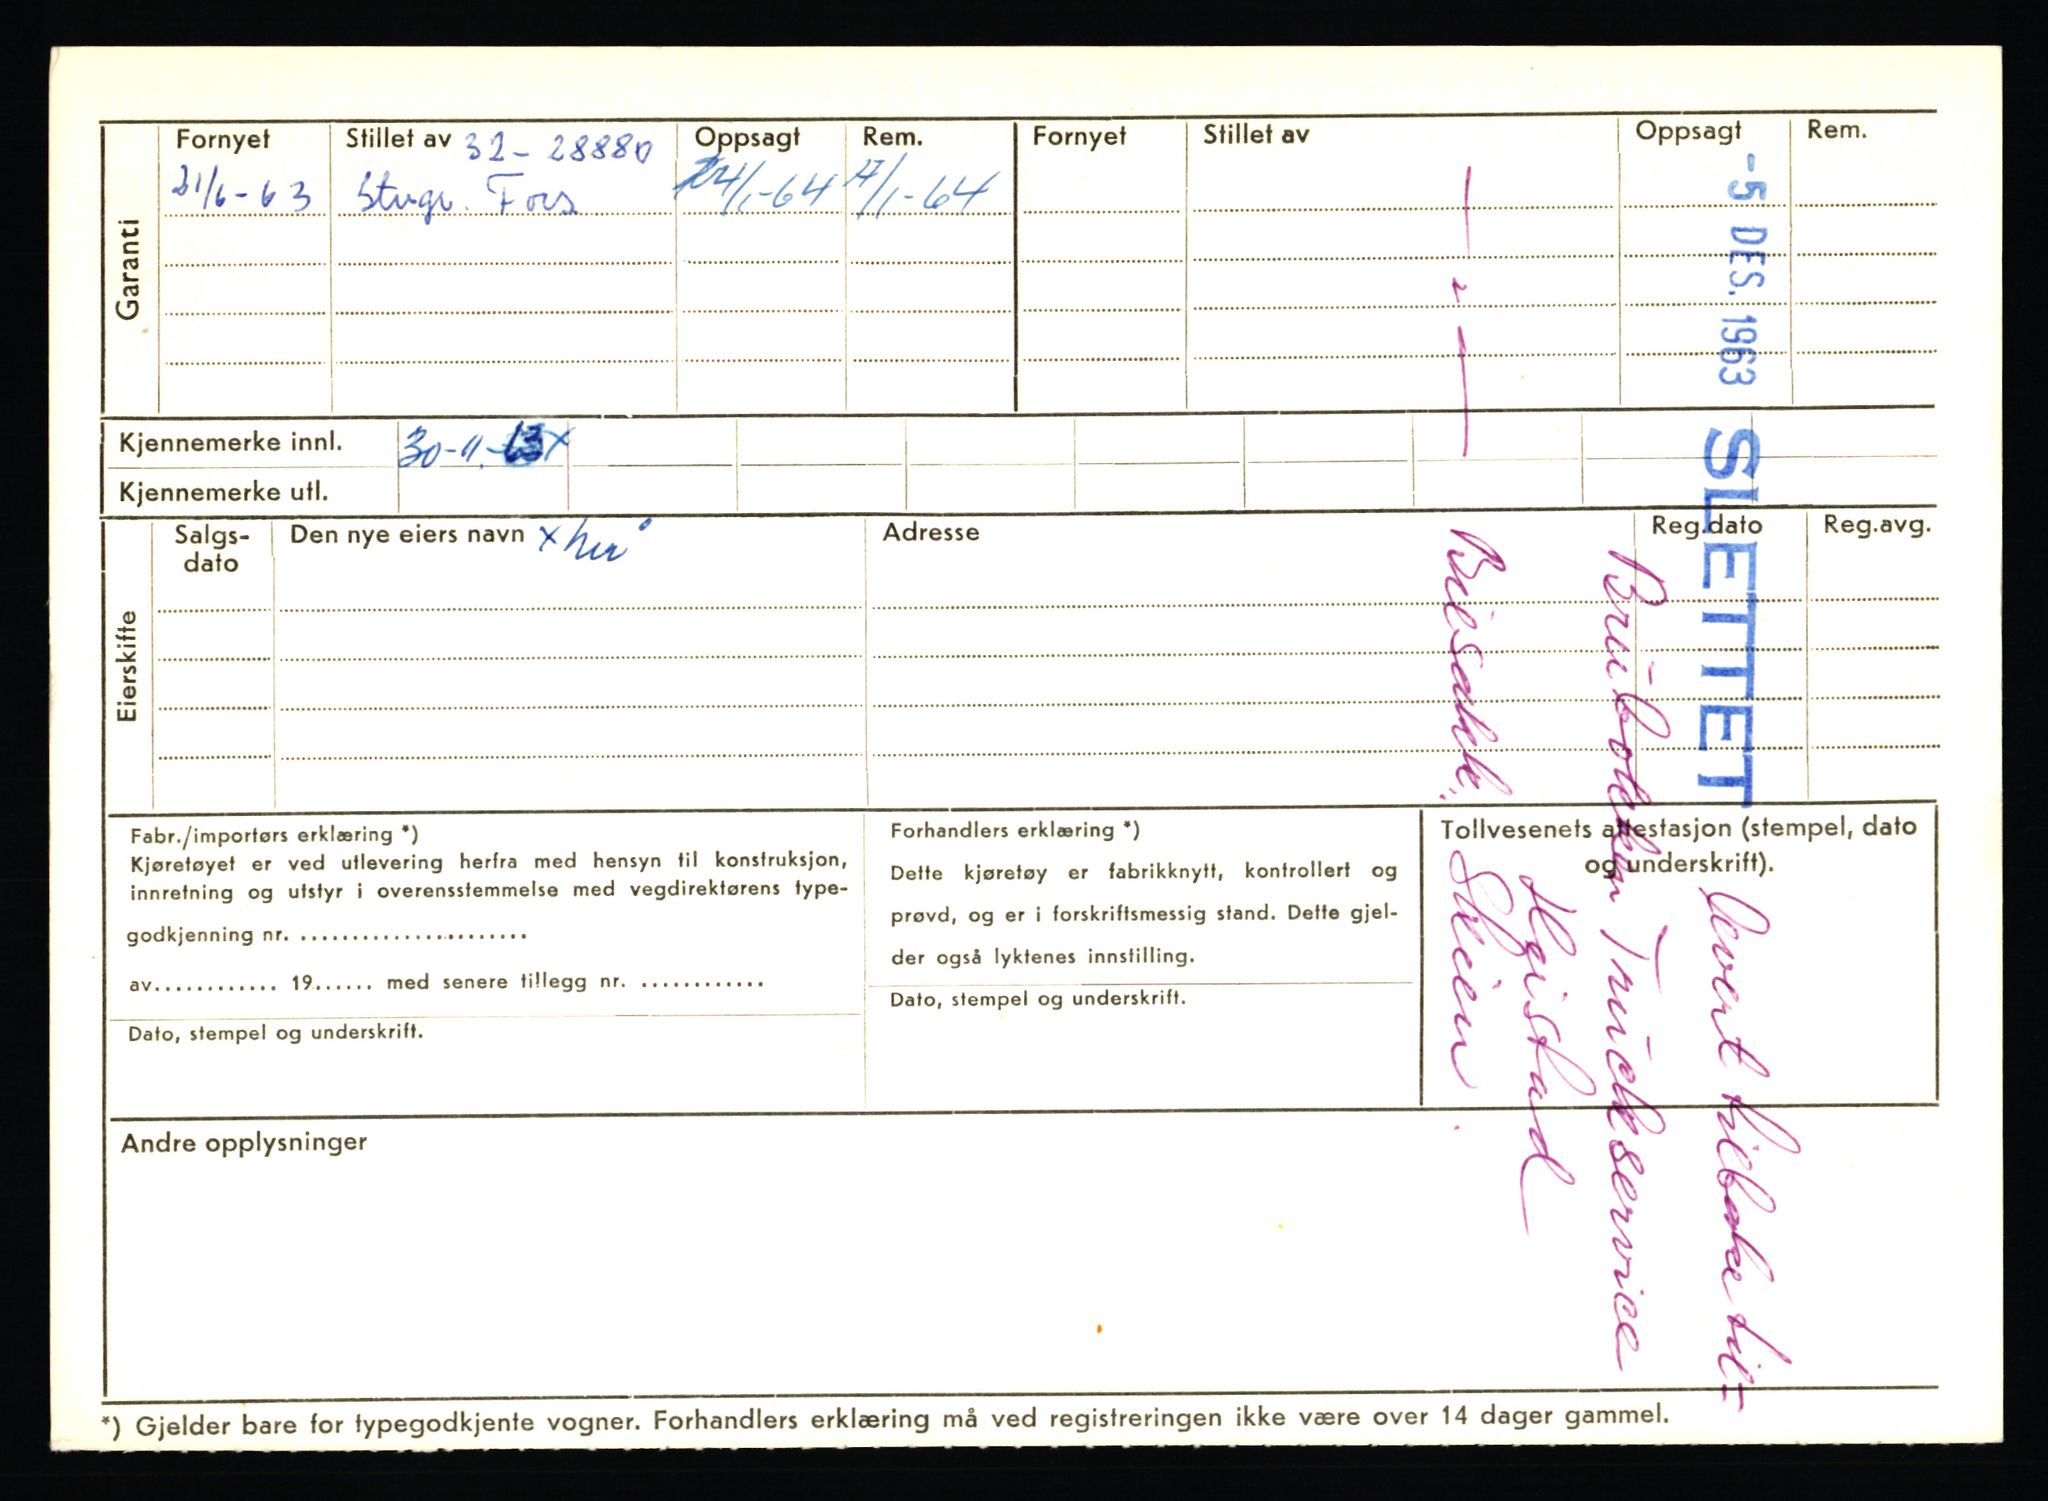 Garanti
Fornyet
Stillet av 32-28880
Oppsagt
Rem.
Fornyet
Stillet av
Oppsagt
Rem.
21/6-63
Fors
24/1-64
17/1-64
Kjennemerke innl. 30-11-63 x
Kjennemerke utl.
Eierskifte
Salgs-
dato
Den nye eiers navn x her
Adresse
Reg.dato
Reg.avg.
Fabr./importørs erklæring *)
Kjøretøyet er ved utlevering herfra med hensyn til konstruksjon,
innretning og utstyr i overensstemmelse med vegdirektørens type-
godkjenning nr. .......................
av............ 19...... med senere tillegg nr. ............
Dato, stempel og underskrift.
Forhandlers erklæring *)
Dette kjøretøy er fabrikknytt, kontrollert og
prøvd, og er i forskriftsmessig stand. Dette gjel-
der også lyktenes innstilling.
Dato, stempel og underskrift.
Tollvesenets attestasjon (stempel, dato
og underskrift).
Andre opplysninger
*) Gjelder bare for typegodkjente vogner. Forhandlers erklæring må ved registreringen ikke være over 14 dager gammel.
-5 DES. 1963 SLETTET
levert tilbake til
Truckservice